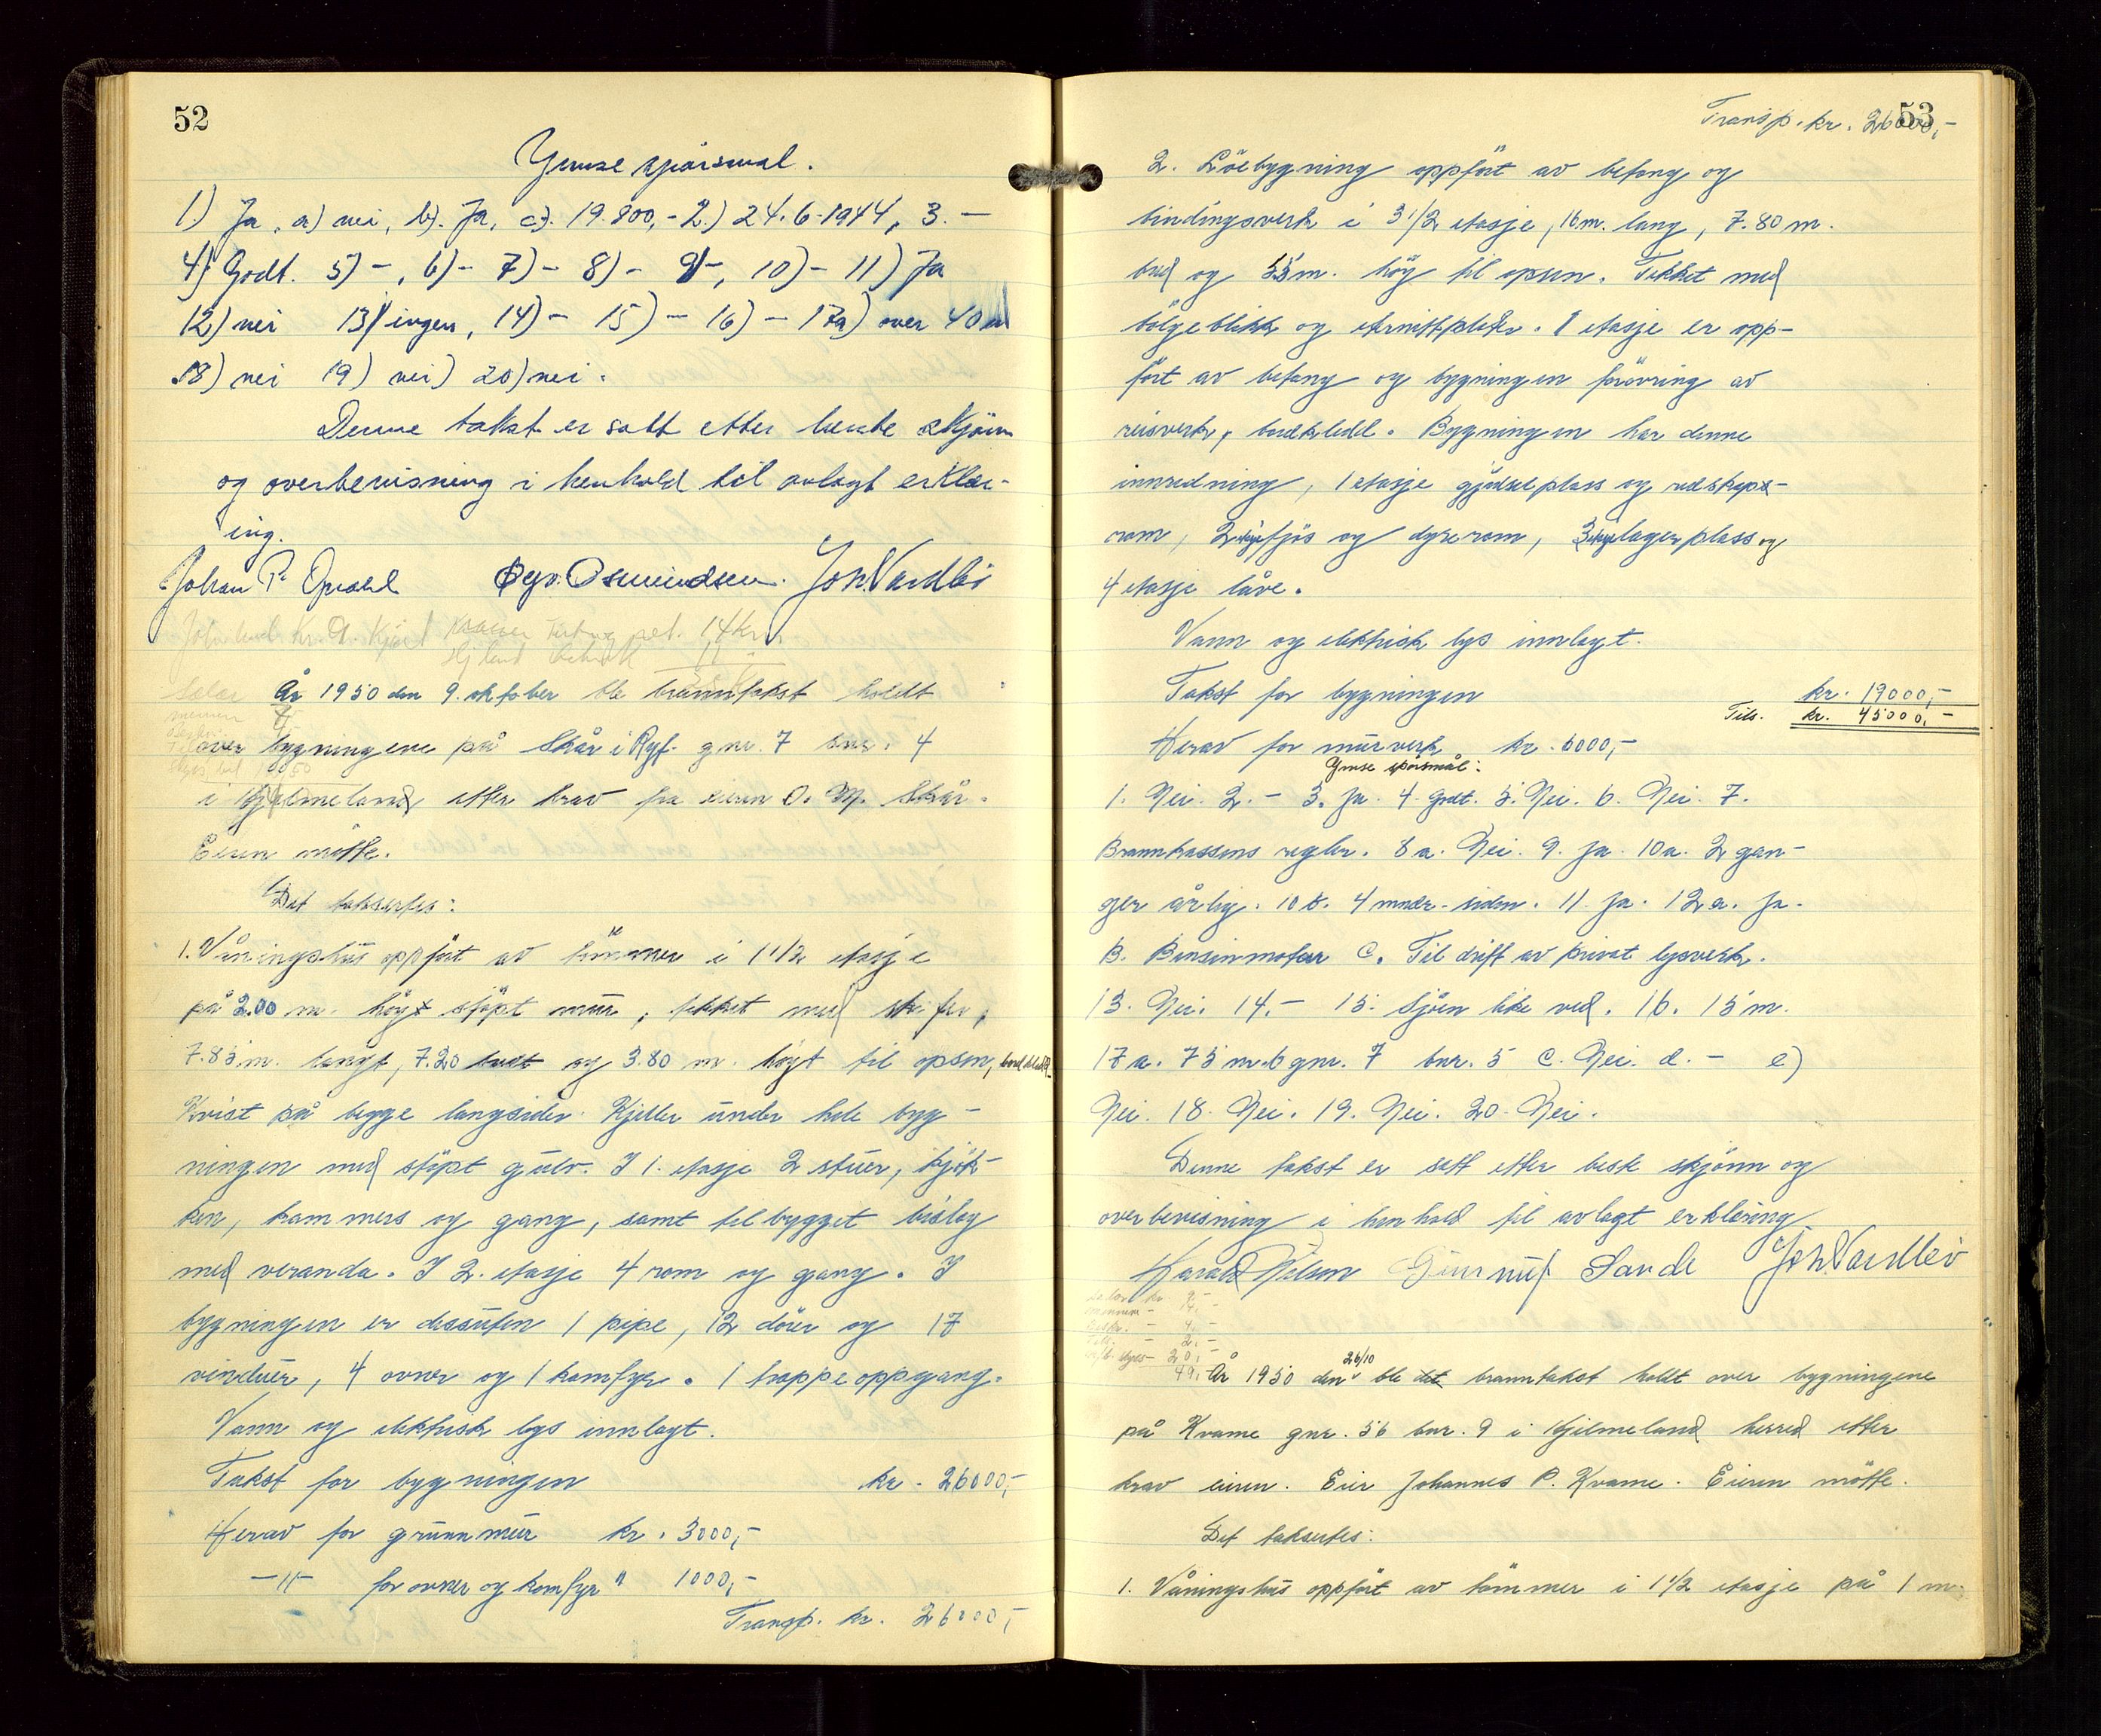 52
Ymse spörsmål.
1.) Ja, a) nei, b). Ja, c). 19.800,- 2.) 24.6-1944, 3. —
4) Godt. 5) -, 6) - 7) - 8) - 9) -, 10) - 11) Ja
12) nei 13) ingen, 14) - 15) - 16) - 17a) over 40 m
18) nei 19) nei) 20) nei.
Denne takst er satt etter beste skjönn
og overbevisning i henhold til avlagt erklær-
ing.
Johan P. Opsahl Osmundsen. Joh. Vardlöv
14 km
År 1950 den 9. oktober ble branntakst holdt
over bygningene på Skår i Ryf. gnr. 7 bnr. 4
i Hjelmeland etter krav fra eieren O. M. Skår.
Eieren mötte.
Det taksertes:
1. Våningshus oppfört av tömmer i 1 1/2 etasje
på 2.00 m. högt stöpt mur, tekket med skifer,
7.85 m. langt, 7.20 bredt og 3.80 m. högt til opsen, bordkledd.
Kvist på begge langsider. Kjeller under hele byg-
ningen med stöpt gulv. I 1. etasje 2 stuer, kjök-
ken, kammers og gang, samt tilbygget bislag
med veranda. I 2. etasje 4 rom og gang. I
bygningen er dessuten 1 pipe, 12 dörer og 17
vinduer, 4 ovner og 1 komfyr. 1 trappeoppgang.
Vann og elektrisk lys innlagt.
Takst for bygningen kr. 26000,-
Herav for grunnmur kr. 3000,-
-"- for ovner og komfyr " 1000,-
Transp. kr. 26000,-
53
Transp. kr. 26000,-
2. Löebygning oppfört av betong og
bindingsverk i 3 1/2 etasje, 16 m. lang, 7.80 m.
bred og m. höy til opsen. Tekket med
bölgeblikk og eternittplater. 1 etasje er opp-
fört av betong og bygningen forövring av
reisverk, bordkledd. Bygningen har denne
innredning, 1 etasje gjödselplass og redskaps-
rom, 2 etasje fjös og dyrerom, 3 etasje lagerplass og
4 etasje låve.
Vann og elektrisk lys innlagt.
Takst for bygningen kr. 19000,-
Tils. kr. 45000,-
Herav for murverk kr. 6000,-
Ymse spörsmål:
1. Nei. 2. - 3. Ja. 4. Godt. 5. Nei. 6. Nei. 7.
Brannkassens regler. 8 a. Nei. 9. Ja. 10 a. 2 gan-
ger årlig. 10 b. 4 mndr. siden. 11. Ja. 12 a. Ja.
B. Bensinmotor C. Til drift av privat lysverk.
13. Nei. 14. - 15. Sjöen like ved. 16. 15 m.
17 a. 75 m. b gnr. 7 bnr. 5 C. Nei. d. - e)
Nei. 18. Nei. 19. Nei. 20. Nei.
Denne takst er sett etter beste skjönn og
overbevisning i henhold til avlagt erklæring
Harald Nilsen Gunnulf Sande Joh. Vardlöv
År 1950 den 26/10 ble det branntakst holdt over bygningene
på Kvame gnr. 56 bnr. 9 i Hjelmeland herred etter
krav eieren. Eier Johannes P. Kvame. Eieren mötte.
Det taksertes:
1. Våningshus oppfört av tömmer i 1 1/2 etasje på 1 m.